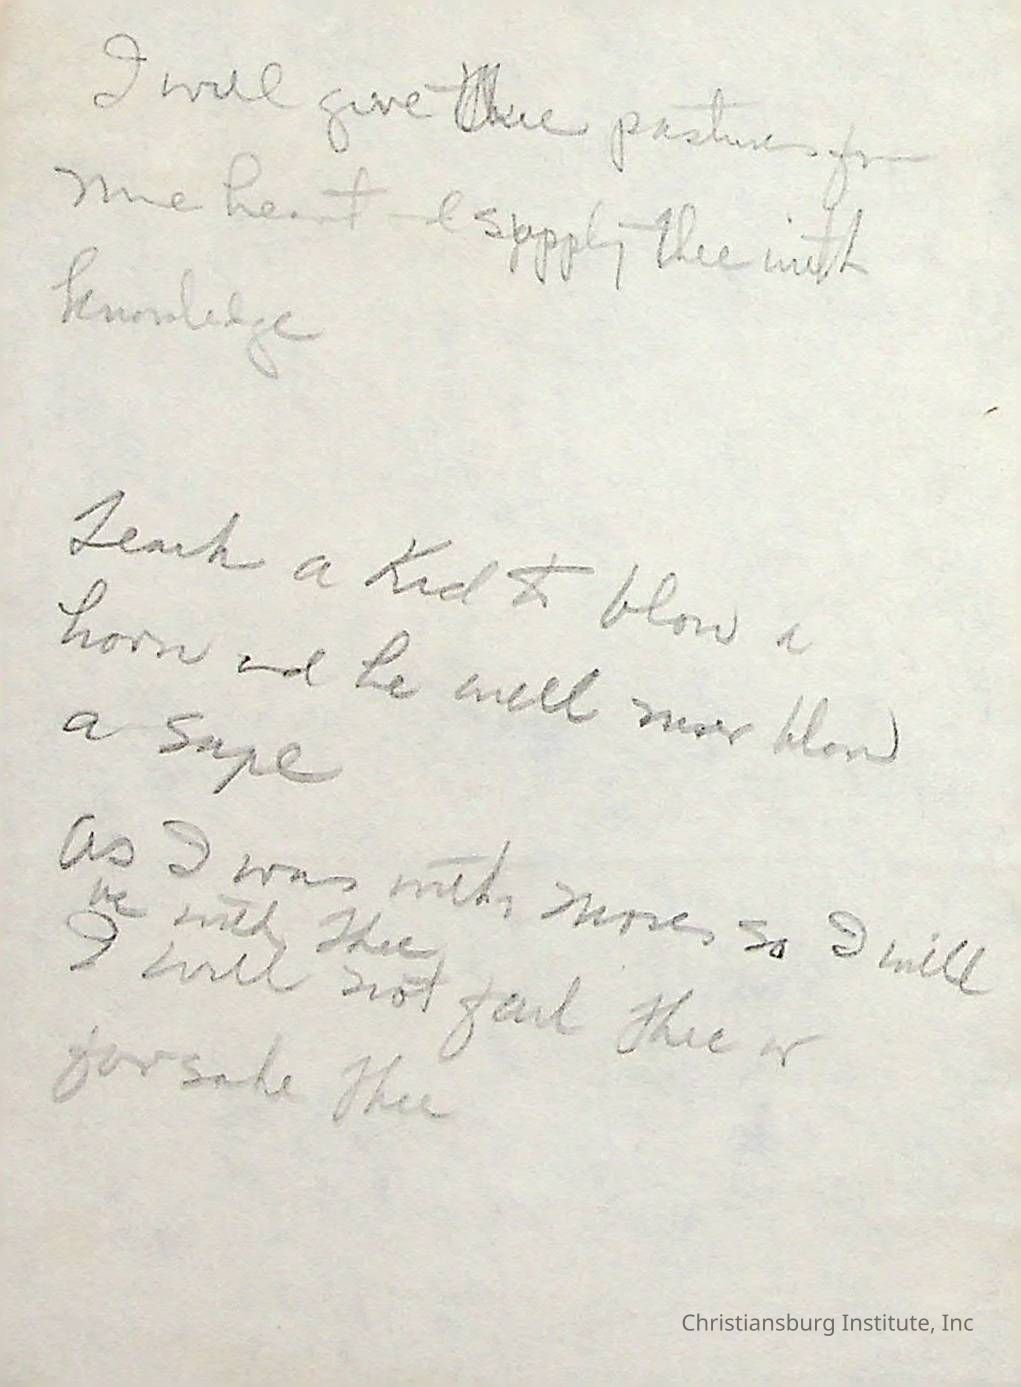 I will give thee pastures from
mine heart & supply thee with
knowledge
Teach a Kid to blow a
horn and he will never blow
a safe
as I was with Moses so I will
be with thee
I will not fail thee or
forsake thee
Christiansburg Institute, Inc